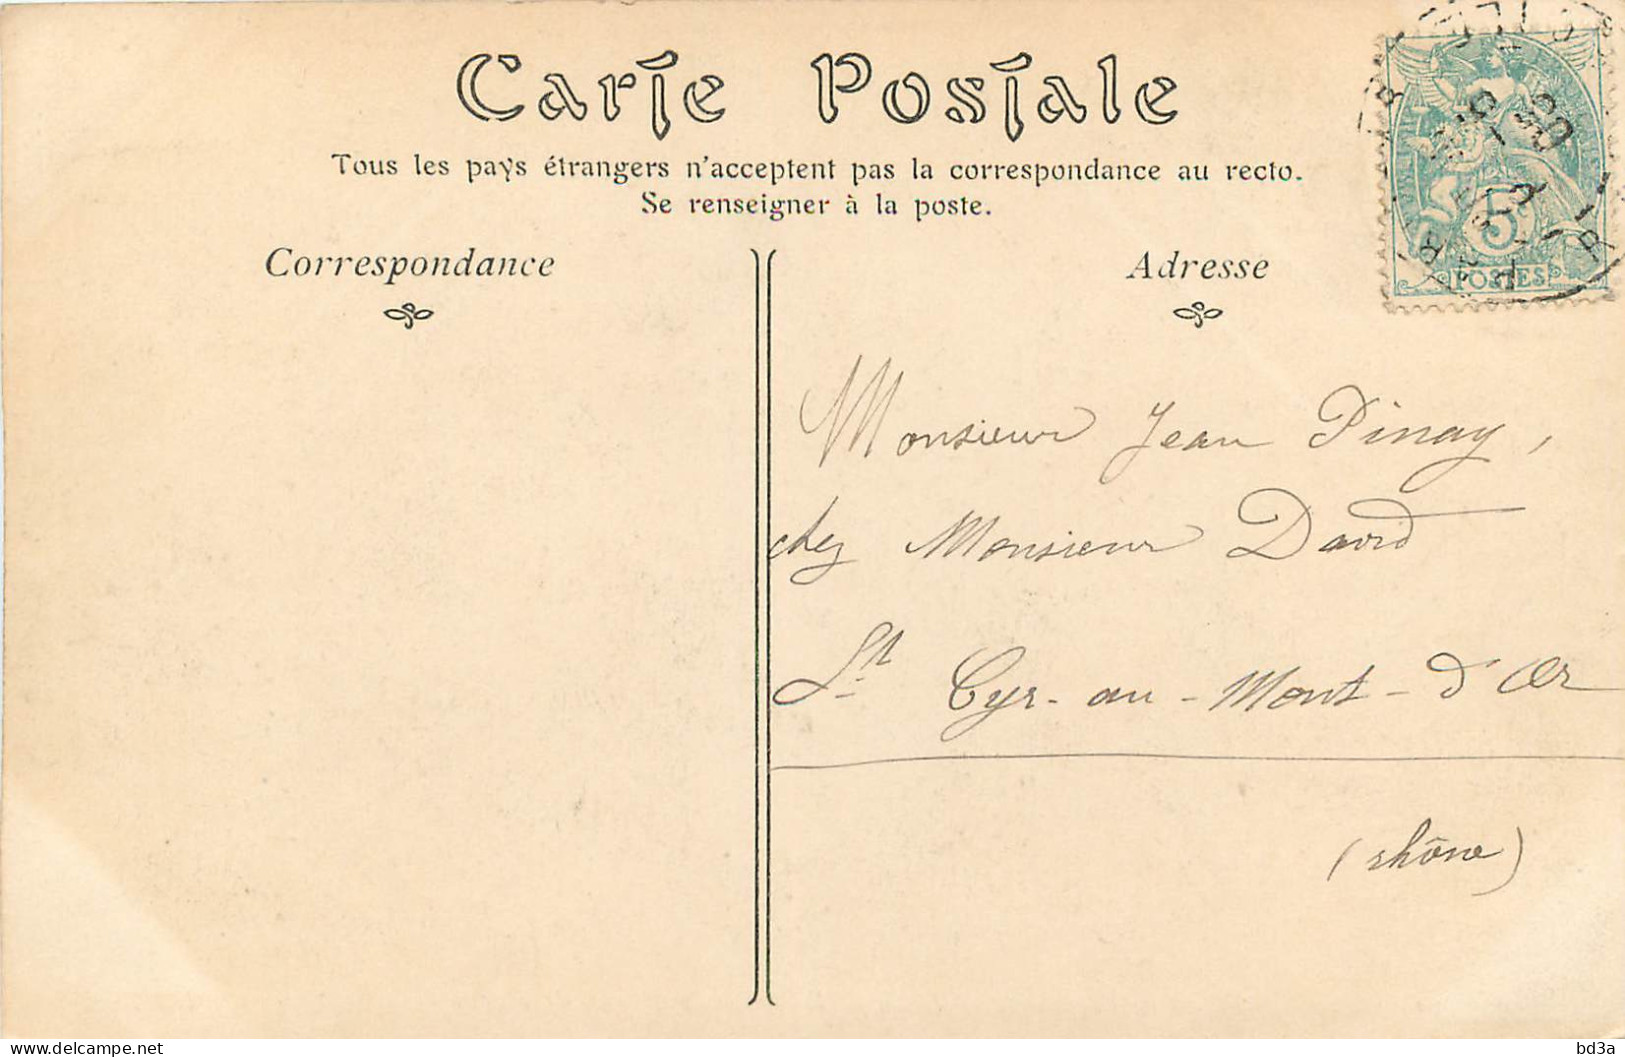 Carte Postale
Tous les pays étrangers n'acceptent pas la correspondance au recto.
Se renseigner à la poste.
Correspondance
Adresse
5
POSTES
Monsieur Jean Pinay,
chez Monsieur David
St Cyr-au-Mont-d'Or
(rhône)
delcampe.net
bd3a